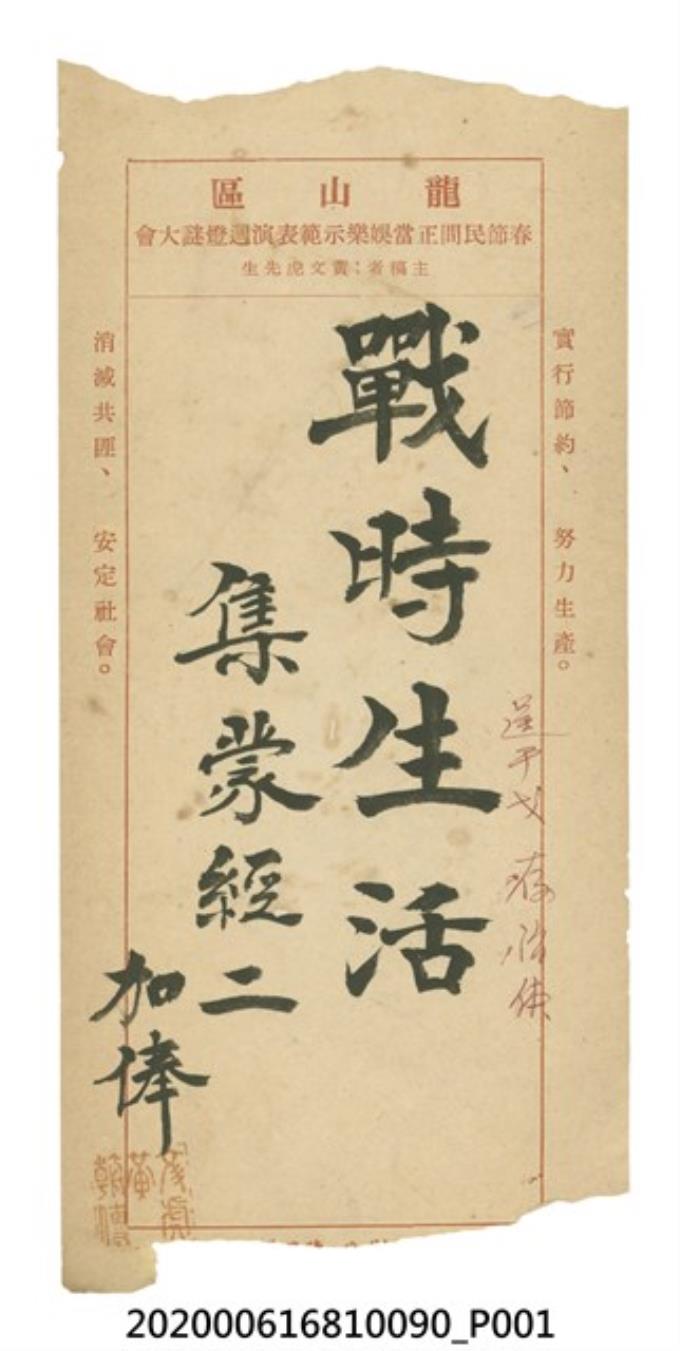 龍山區
春節民間正當娛樂示範表演週燈謎大會
主稿者：黃文虎先生
實行節約、努力生產。
戰時生活
集蒙經二
加俸
消滅共匪、安定社會。
逞干戈
202000616810090_P001